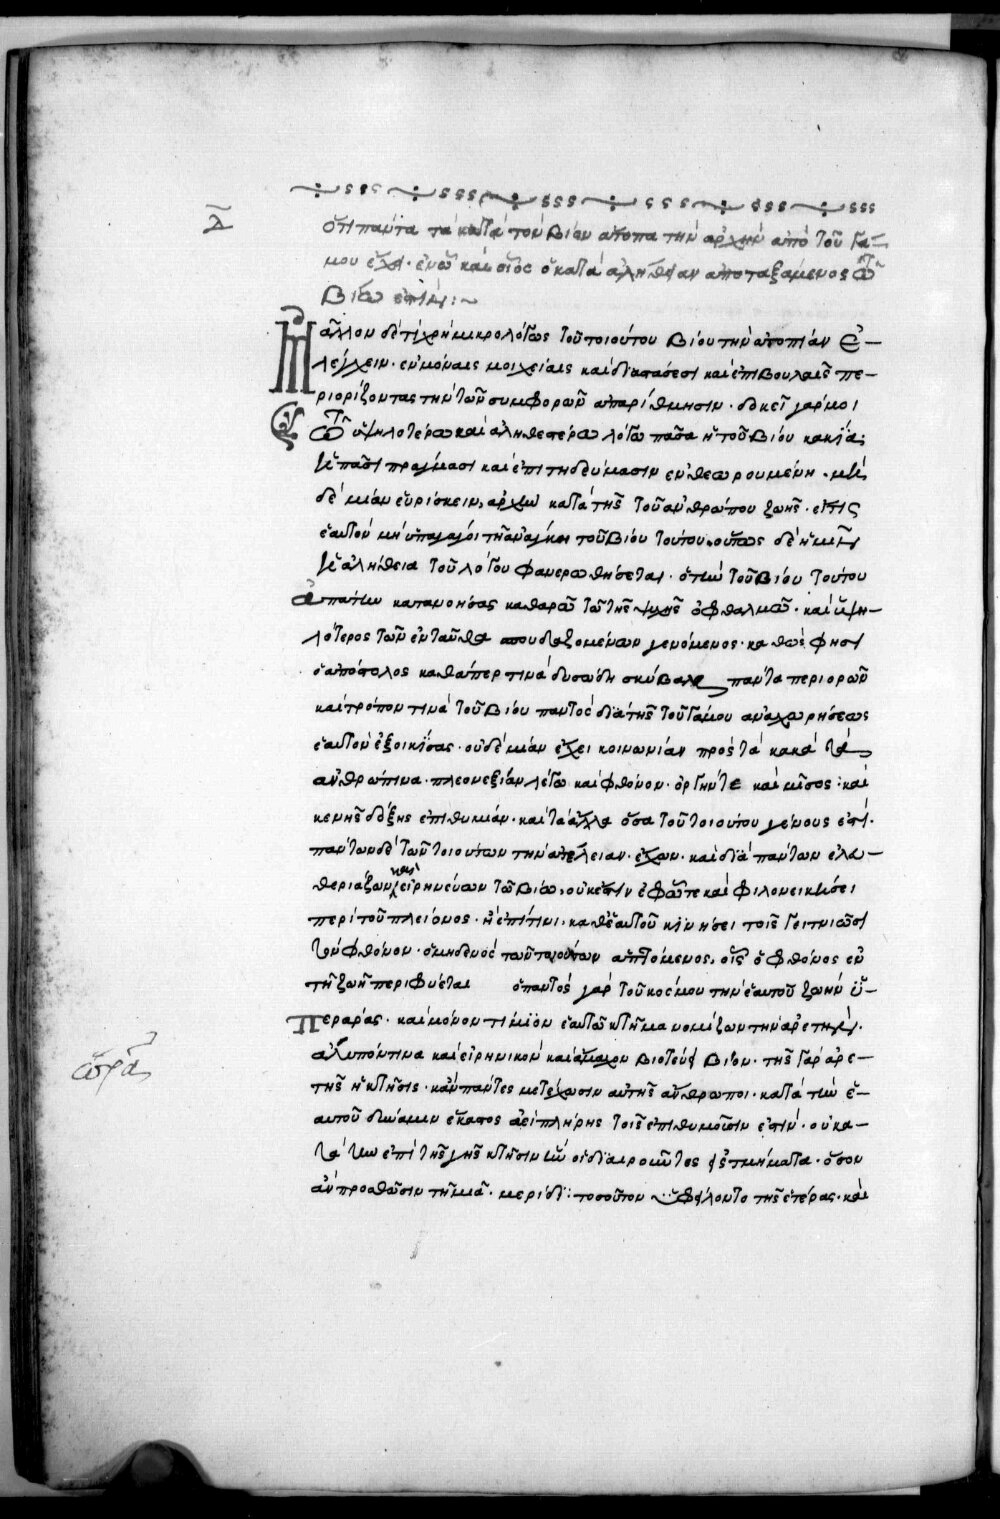 δ
ὅτι πάντα τὰ κατὰ τὸν βίον ἄτοπα τὴν ἀρχὴν ἀπὸ τοῦ γά-
μου ἔχει· ἐν ᾧ καὶ οἷος ὁ κατὰ ἀλήθειαν ἀποταξάμενος τῷ
βίῳ ἐστίν :~
Μᾶλλον δὲ τί χρὴ μικρολόγως τοῦ τοιούτου βίου τὴν ἀτοπίαν ἐ-
λέγχειν· ἐν μόναις μοιχείαις καὶ διαστάσεσι καὶ ἐπιβουλαῖς πε-
ριορίζοντας τὴν τῶν συμφορῶν ἀπαρίθμησιν· δοκεῖ γάρ μοι
τῷ ὑψηλοτέρῳ καὶ ἀληθεστέρῳ λόγῳ πᾶσα ἡ τοῦ βίου κακία
πᾶσι πράγμασι καὶ ἐπιτηδεύμασιν ἐνθεωρουμένη· μὴ
δὲ μίαν εὑρίσκειν, ἀρχὴν κατὰ τῆς τοῦ ἀνθρώπου ζωῆς· εἴ τις
ἑαυτὸν μὴ ὑπαγάγοι τῇ ἀνάγκῃ τοῦ βίου τούτου. οὕτως δὲ ἡμῖν
ἡ ἀλήθεια τοῦ λόγου φανερωθήσεται· ὁ τὴν τοῦ βίου τούτου
ἀπάτην κατανοήσας καθαρῷ τῷ τῆς ψυχῆς ὀφθαλμῷ· καὶ ὑψη-
λότερος τῶν ἐνταῦθα σπουδαζομένων γενόμενος· καθώς φησι
ὁ ἀπόστολος καθάπερ τινὰ δυσώδη σκύβαλα πάντα περιορῶν
καὶ τρόπον τινὰ τοῦ βίου παντὸς διὰ τῆς τοῦ γάμου ἀναχωρήσεως
ἑαυτὸν ἐξοικίσας· οὐδὲ μίαν ἔχει κοινωνίαν πρὸς τὰ κακὰ τὰ
ἀνθρώπινα· πλεονεξίαν λέγω καὶ φθόνον· ὀργήν τε καὶ μῖσος· καὶ
κενῆς δόξης ἐπιθυμίαν· καὶ τὰ ἄλλα ὅσα τοῦ τοιούτου γένους ἐστί·
πάντων δὲ τῶν τοιούτων τὴν ἀτέλειαν· ἔχων· καὶ διὰ πάντων ἐλευ-
θεριάζων καὶ εἰρηνεύων τῷ βίῳ, οὐκ ἔστιν ἐφ' ᾧ τε καὶ φιλονεικήσει
περὶ τοῦ πλείονος· ἢ ἐπί τινι· καθ' ἑαυτοῦ κινήσει τοῖς γειτνιῶσι
τὸν φθόνον· ὁ μηδενὸς τῶν τοιούτων ἁπτόμενος, οἷς ὁ φθόνος ἐν
τῇ ζωῇ περιφύεται ὁ παντὸς γὰρ τοῦ κόσμου τὴν ἑαυτοῦ ζωὴν ὑ-
περάρας· καὶ μόνον τίμιον ἑαυτῷ κτῆμα νομίζων τὴν ἀρετὴν·
ἄλυπόν τινα καὶ εἰρηνικὸν καὶ ἄμαχον βιοτεύει βίον· τῆς γὰρ ἀρε-
τῆς ἡ κτῆσις· κἂν πάντες μετέχωσιν αὐτῆς ἄνθρωποι· κατὰ τὴν ἑ-
αυτοῦ δύναμιν ἕκαστος ἀεὶ πλήρης τοῖς ἐπιθυμοῦσιν ἐστίν· οὐ κα-
τὰ τὴν ἐπὶ τῆς γῆς κτῆσιν ἣν οἱ διαιροῦντες εἰς τμήματα· ὅσον
ἂν προσθῶσιν τῇ μιᾷ· μερίδι: τοσοῦτον ὑφείλοντο τῆς ἑτέρας· καὶ
ὡραῖον